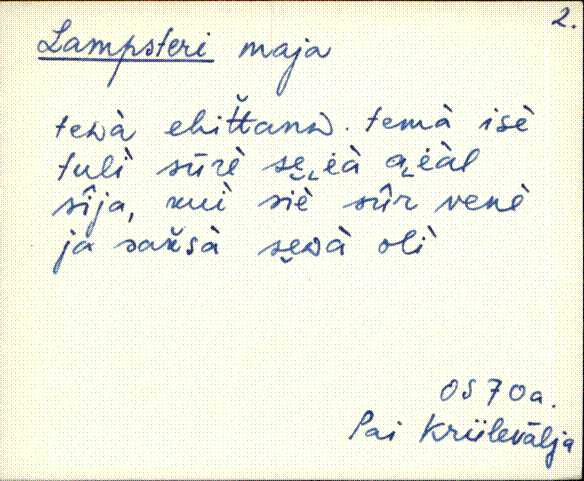 2.
Lampsteri maja
teᴅà ehitt̆anᴅ. temà isè
tulì sūrè sę̮i̯à ai̯àl
sîja, kui siè sûr venè
ja saksà sęᴅà olì
OS 70a.
Pai Kriilevälja